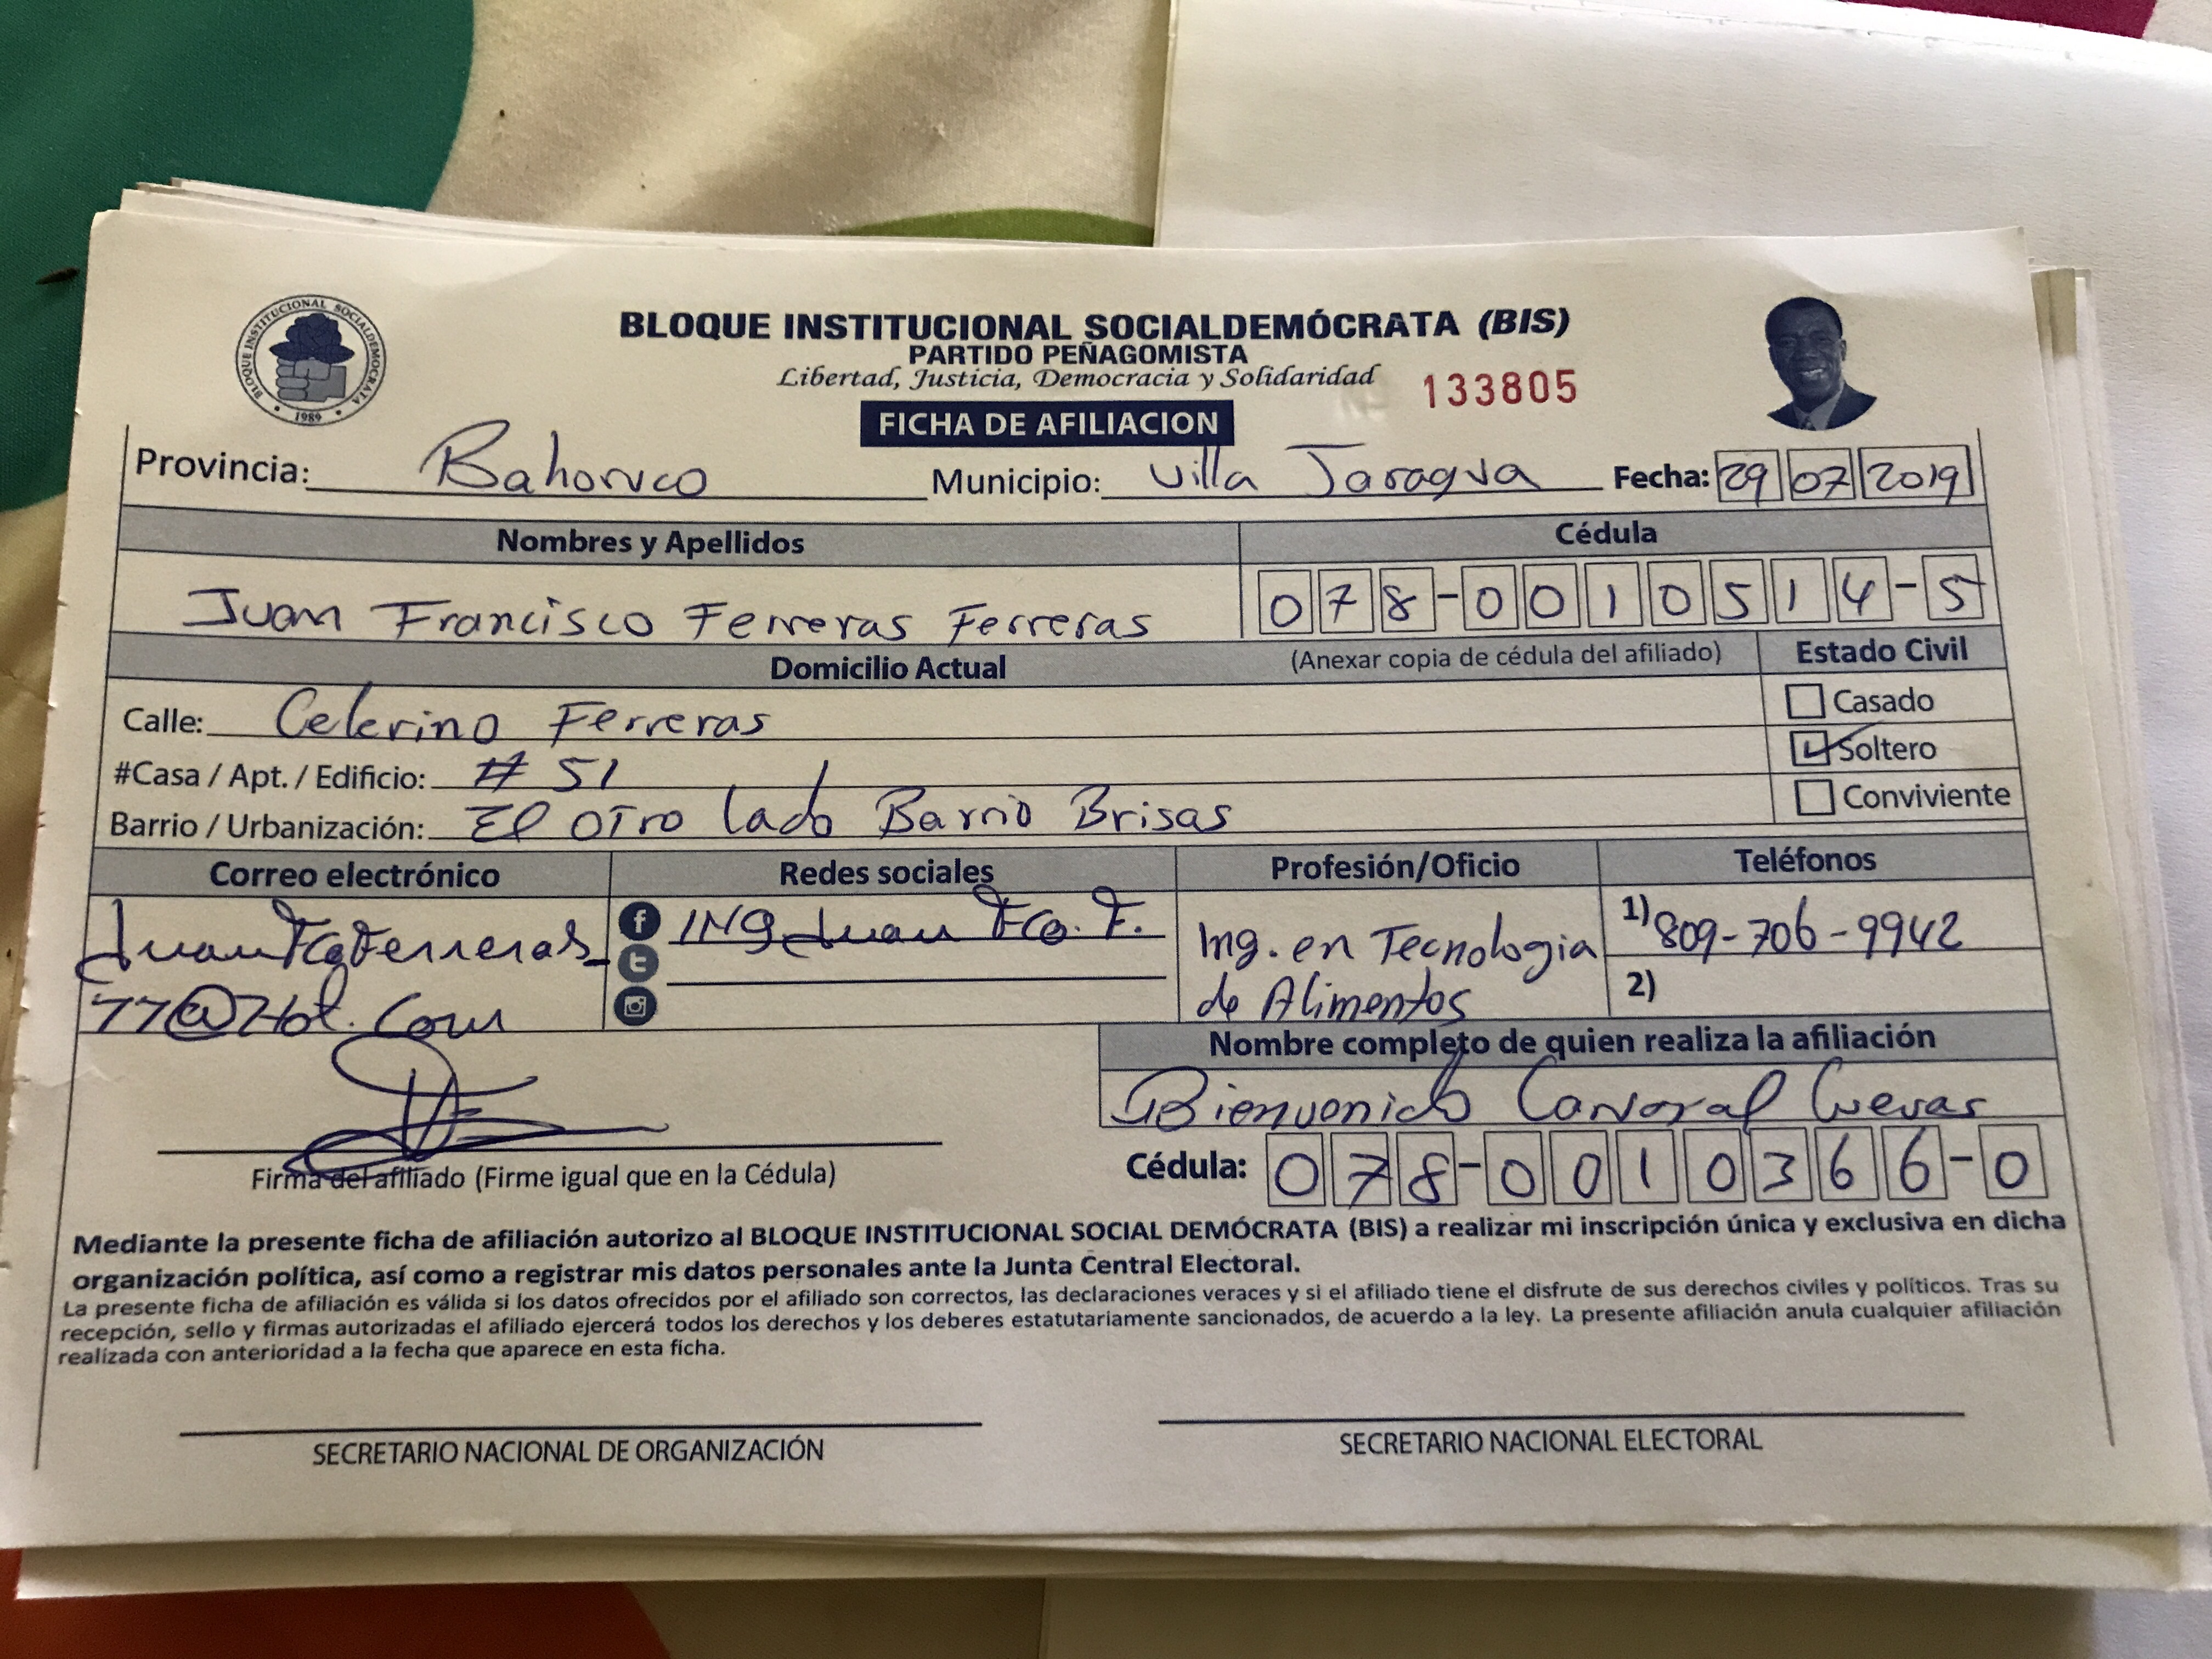 BLOQUE INSTITUCIONAL SOCIALDEMÓCRATA
1989
BLOQUE INSTITUCIONAL SOCIALDEMÓCRATA (BIS)
PARTIDO PEÑAGOMISTA
Libertad, Justicia, Democracia y Solidaridad
133805
FICHA DE AFILIACION
Provincia: Bahoruco Municipio: Villa Jaragua Fecha: 29 07 2019
Nombres y Apellidos Cédula
Juan Francisco Ferreras Ferreras 078-0010514-5
Domicilio Actual (Anexar copia de cédula del afiliado) Estado Civil
Calle: Celerino Ferreras Casado
#Casa / Apt. / Edificio: # 51 Soltero
Barrio / Urbanización: El otro lado Barrio Brisas Conviviente
Correo electrónico Redes sociales Profesión/Oficio Teléfonos
JuanFcoFerreras_ ING Juan Fco. F. Ing. en Tecnologia 1) 809-706-9942
77@Hot.Com de Alimentos 2)
Nombre completo de quien realiza la afiliación
Bienvenido Carvajal Cuevas
Firma del afiliado (Firme igual que en la Cédula) Cédula: 078-0010366-0
Mediante la presente ficha de afiliación autorizo al BLOQUE INSTITUCIONAL SOCIAL DEMÓCRATA (BIS) a realizar mi inscripción única y exclusiva en dicha
organización política, así como a registrar mis datos personales ante la Junta Central Electoral.
La presente ficha de afiliación es válida si los datos ofrecidos por el afiliado son correctos, las declaraciones veraces y si el afiliado tiene el disfrute de sus derechos civiles y políticos. Tras su
recepción, sello y firmas autorizadas el afiliado ejercerá todos los derechos y los deberes estatutariamente sancionados, de acuerdo a la ley. La presente afiliación anula cualquier afiliación
realizada con anterioridad a la fecha que aparece en esta ficha.
SECRETARIO NACIONAL DE ORGANIZACIÓN SECRETARIO NACIONAL ELECTORAL